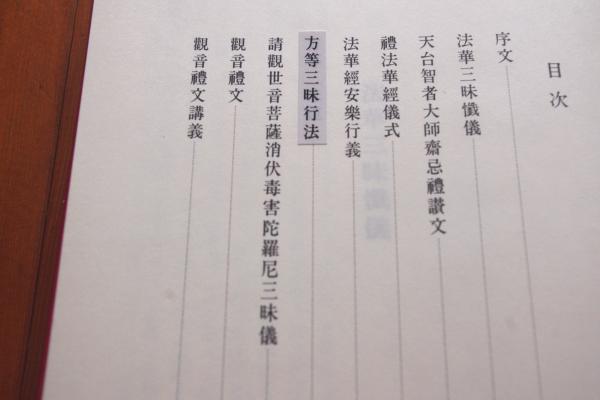 目次
序文
法華三昧懺儀
天台智者大師齋忌禮讚文
禮法華經儀式
法華經安樂行義
方等三昧行法
請觀世音菩薩消伏毒害陀羅尼三昧儀
觀音禮文
觀音禮文講義